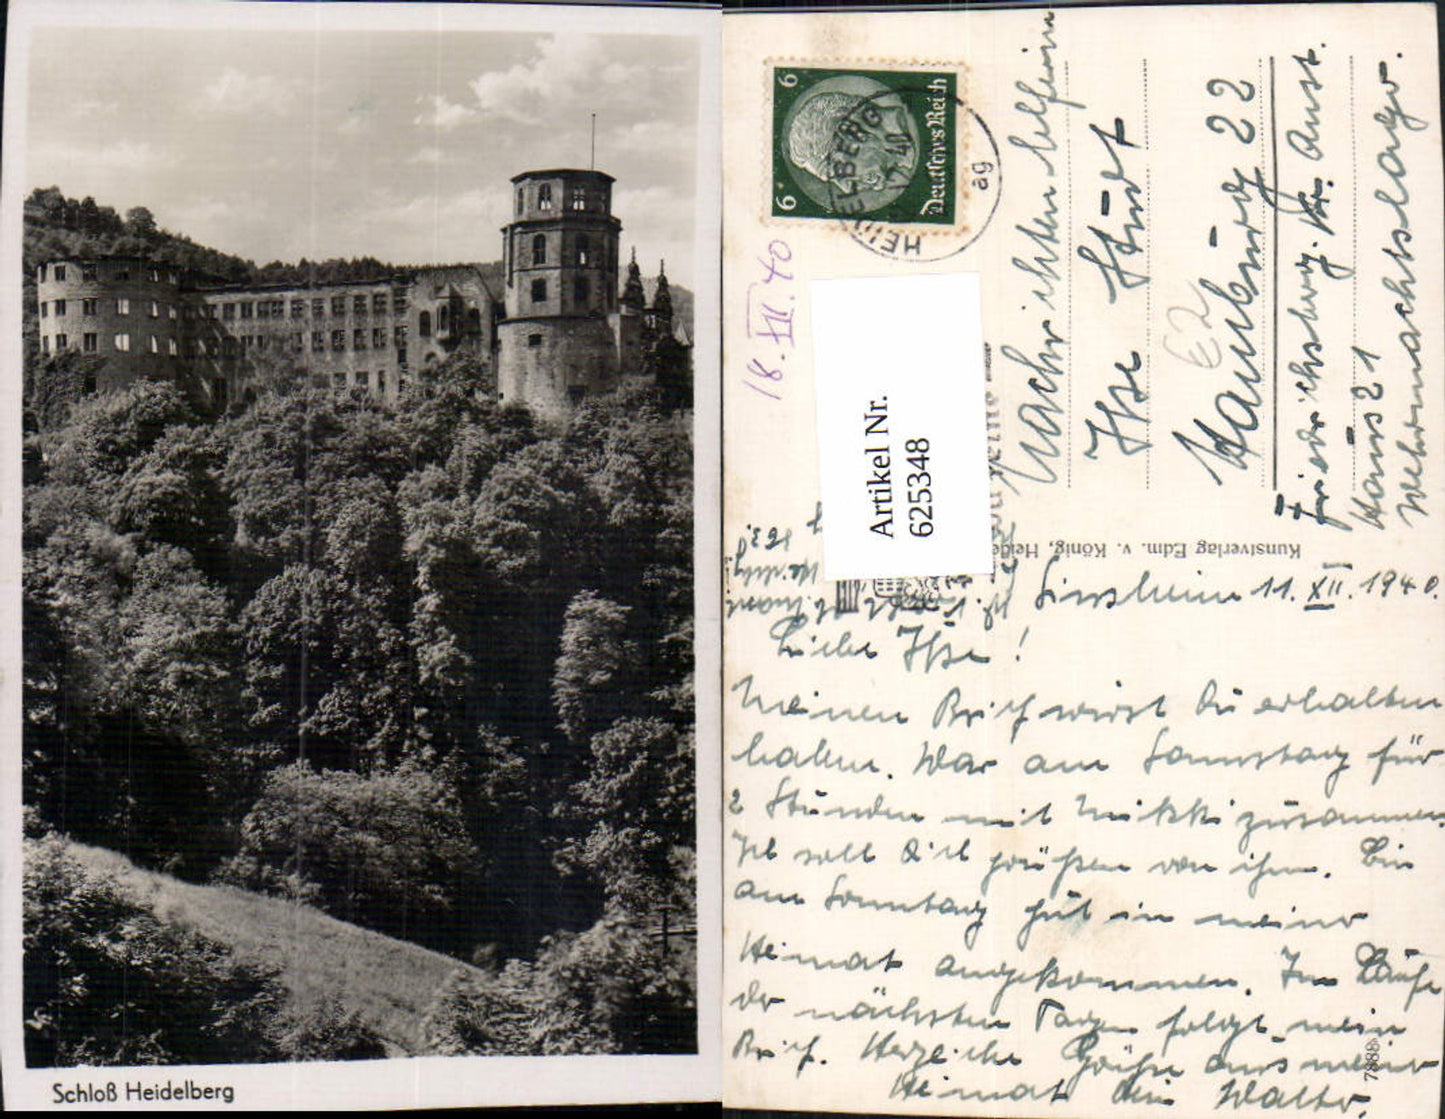 Schloß Heidelberg
6 6
Deutsches Reich
HEIDELBERG
ag
18. XII. 40
Artikel Nr.
625348
Nachrichtenhelferin
Ilse
Hamburg 22
62
Friedrichsberg. Kr. Anst.
Haus 21
Wehrmachtslaz.
Kunstverlag Edm. v. König, Heide
Sinsheim 11. XII. 1940.
Liebe Ilse!
Meinen Brief wirst Du erhalten
haben. War am Samstag für
2 Stunden mit Mikki zusammen.
Ich soll Dich grüßen von ihm. Bin
am Sonntag gut in meiner
Heimat angekommen. Im Laufe
der nächsten Tage folgt mein
Brief. Herzliche Grüße aus meiner
Heimat Dein Walter
7888